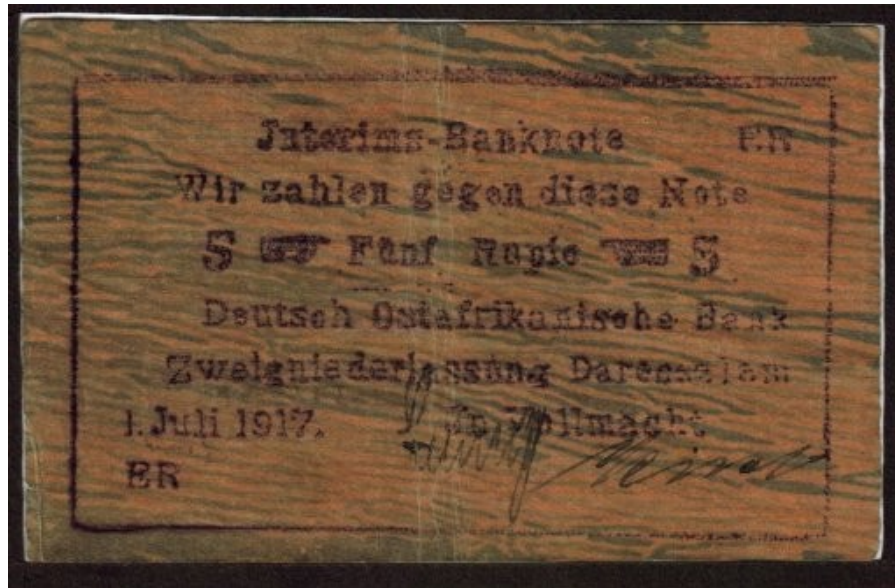 Interims-Banknote ER
Wir zahlen gegen diese Note
5 Fünf Rupie 5
Deutsch Ostafrikanische Bank
Zweigniederlassung Daressalam
1. Juli 1917. In Vollmacht
ER